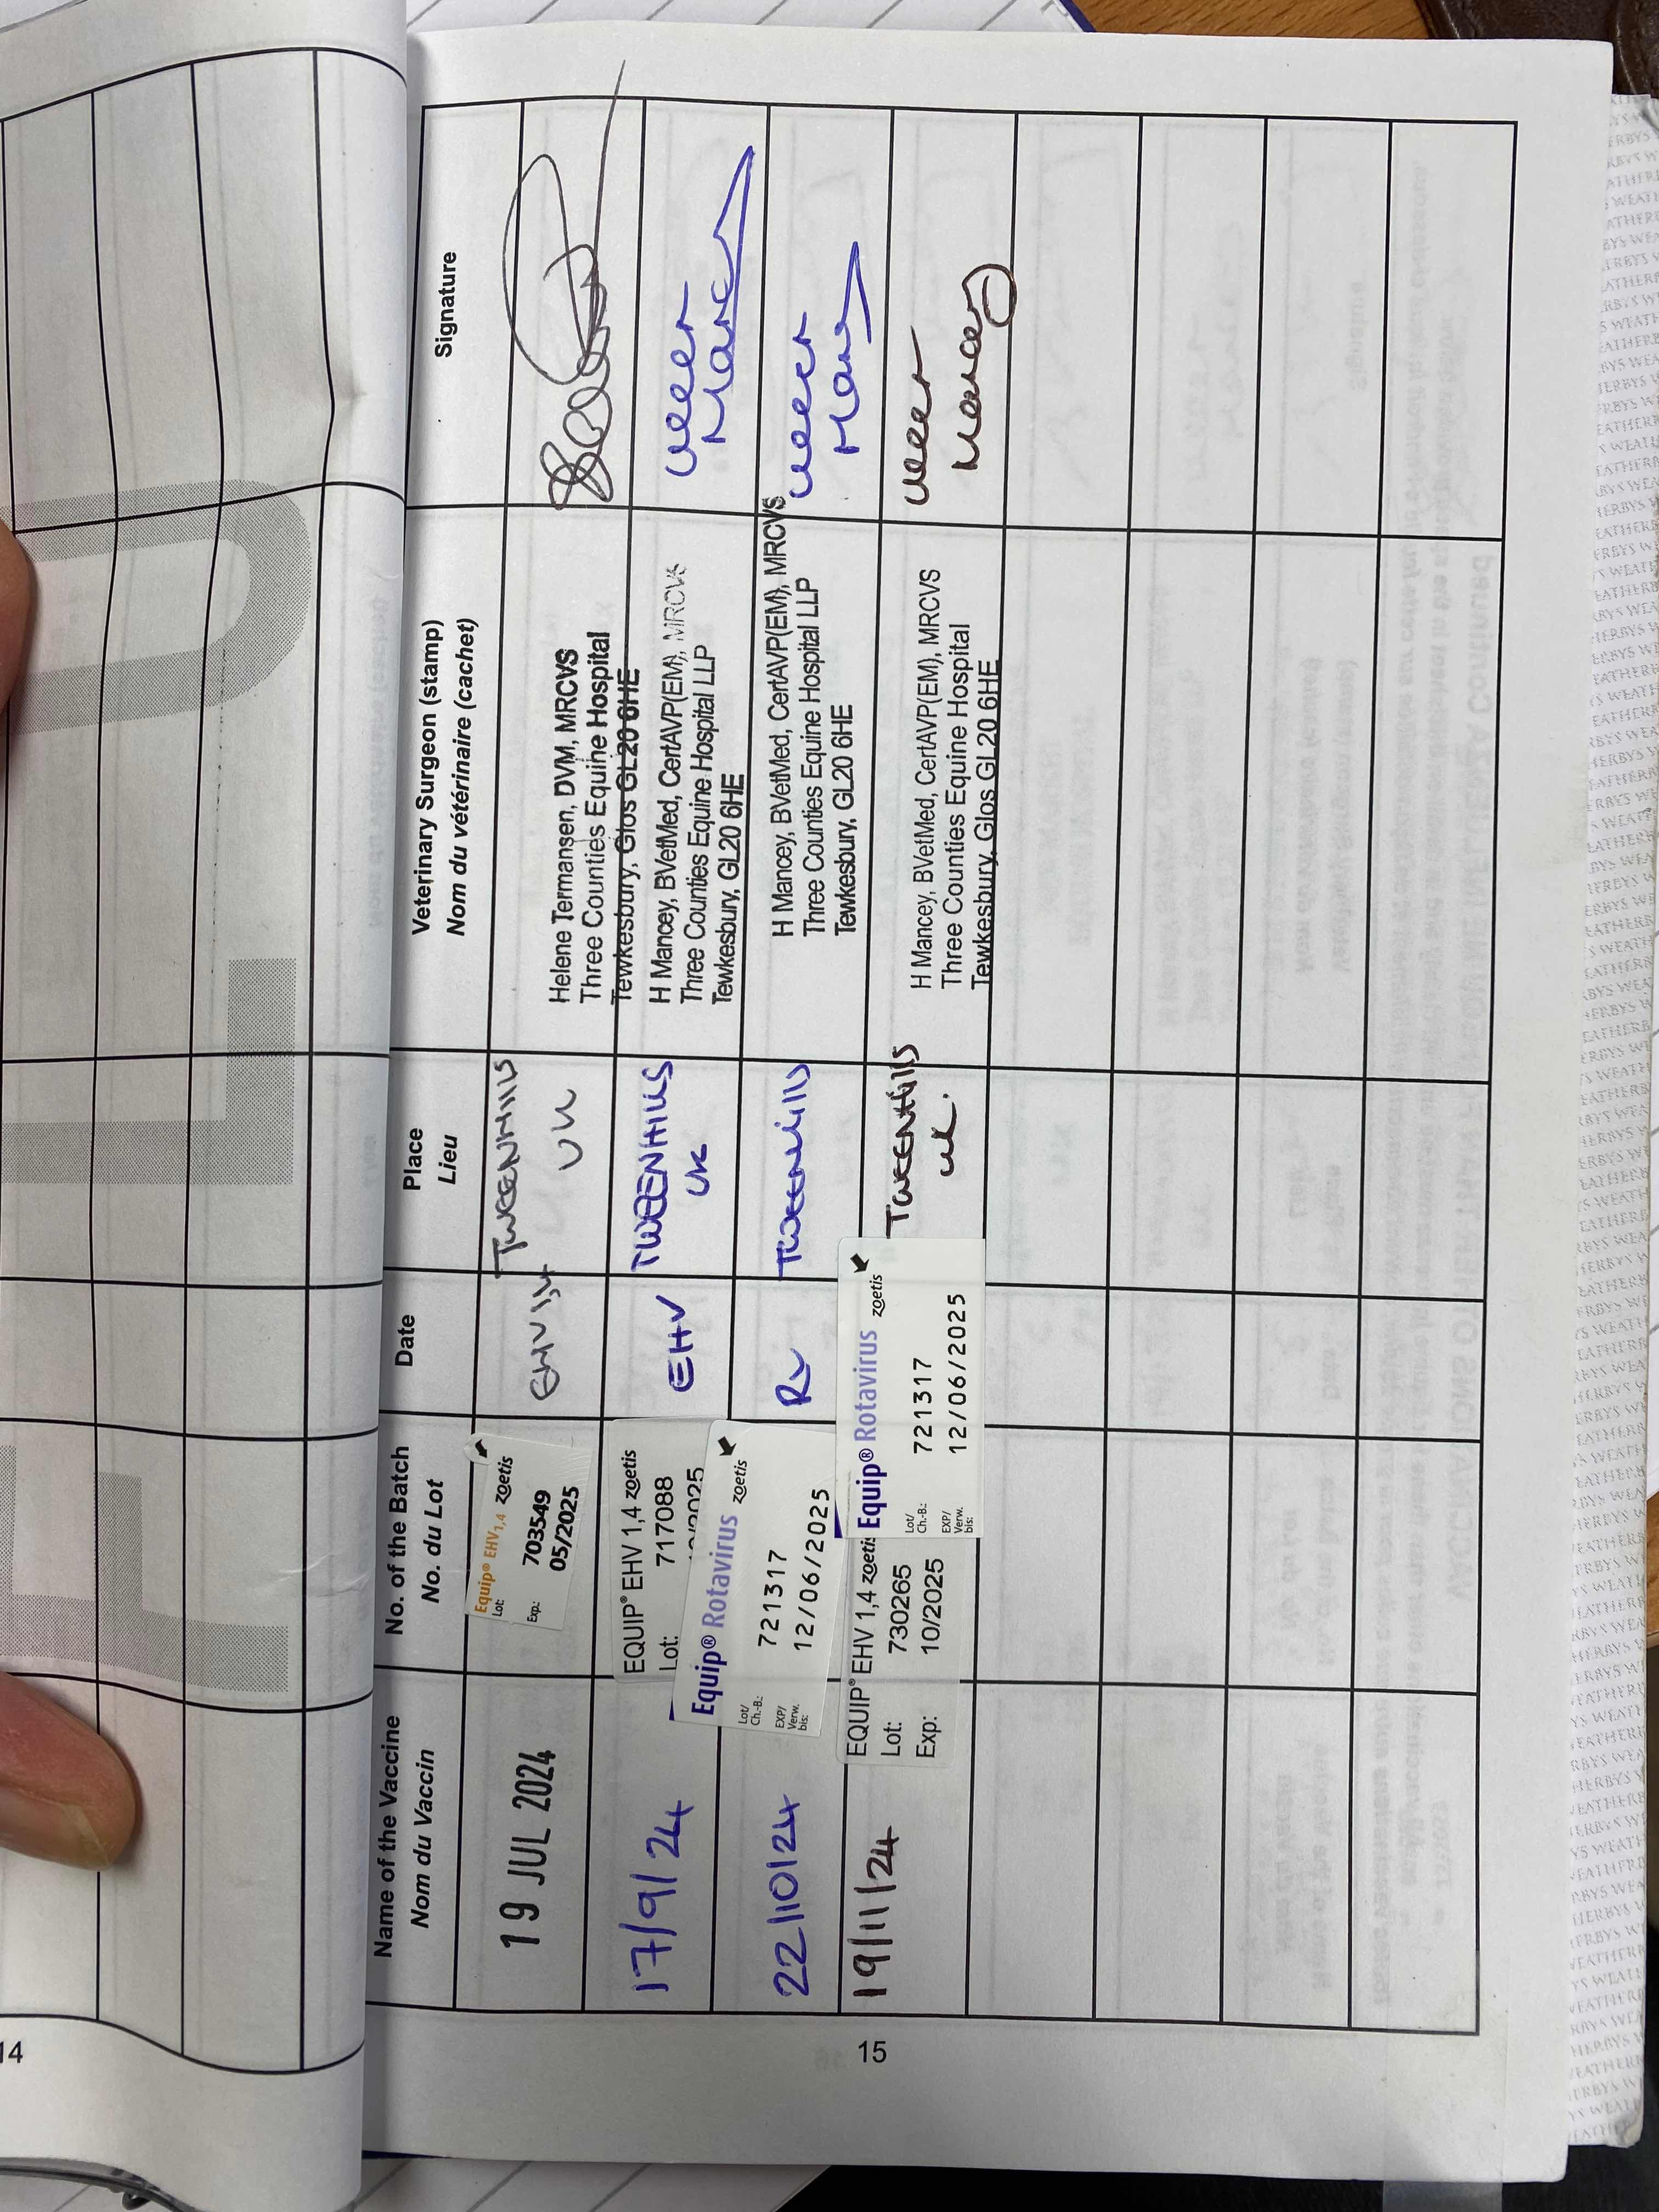 Name of the Vaccine
Nom du Vaccin
No. of the Batch
No. du Lot
Date
Place
Lieu
Veterinary Surgeon (stamp)
Nom du vétérinaire (cachet)
Signature
19 JUL 2024
Equip® EHV1,4 zoetis
Lot:
703549
Exp:
05/2025
EHV 1,4
TWEENHILLS
UK
Helene Termansen, DVM, MRCVS
Three Counties Equine Hospital
Tewkesbury, Glos GL20 6HE
17/9/24
EQUIP® EHV 1,4 zoetis
Lot: 717088
EHV
TWEENHILLS
UK
H Mancey, BVetMed, CertAVP(EM), MRCVS
Three Counties Equine Hospital LLP
Tewkesbury, GL20 6HE
22/10/24
Equip® Rotavirus zoetis
Lot/
Ch.-B.:
721317
EXP/
Verw.
bis:
12/06/2025
RV
Tweenhills
H Mancey, BVetMed, CertAVP(EM), MRCVS
Three Counties Equine Hospital LLP
Tewkesbury, GL20 6HE
19/11/24
EQUIP® EHV 1,4 zoetis
Lot: 730265
Exp: 10/2025
Equip® Rotavirus zoetis
Lot/
Ch.-B.:
721317
EXP/
Verw.
bis:
12/06/2025
TWEENHILLS
UK.
H Mancey, BVetMed, CertAVP(EM), MRCVS
Three Counties Equine Hospital
Tewkesbury, Glos GL20 6HE
Mancey
14
15